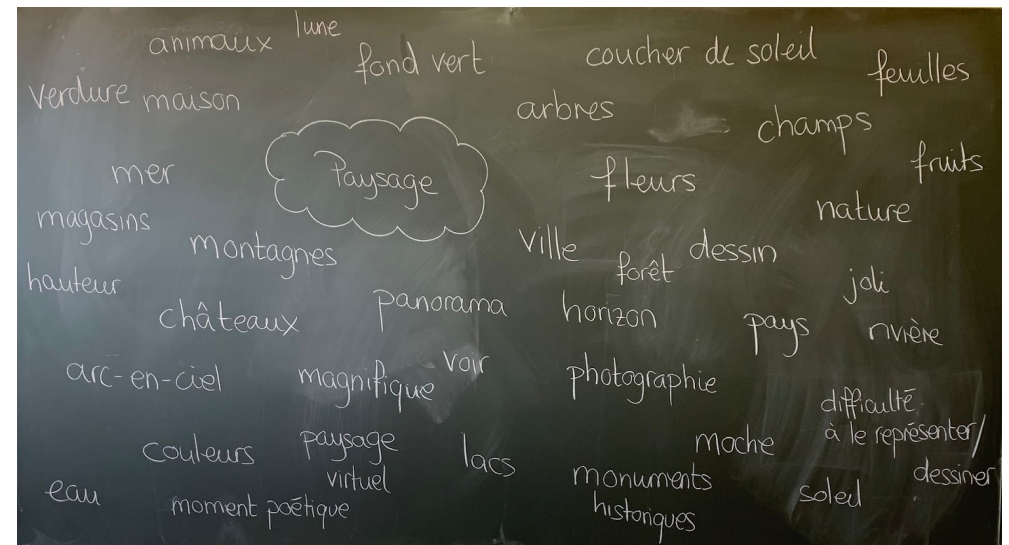 animaux
lune
fond vert
coucher de soleil
feuilles
verdure
maison
arbres
champs
Paysage
mer
fleurs
fruits
magasins
montagnes
ville
forêt
dessin
nature
hauteur
châteaux
panorama
horizon
pays
joli
rivière
arc-en-ciel
magnifique
voir
photographie
difficulté
à le représenter/
dessiner
couleurs
paysage
virtuel
lacs
moche
monuments
historiques
soleil
eau
moment poétique